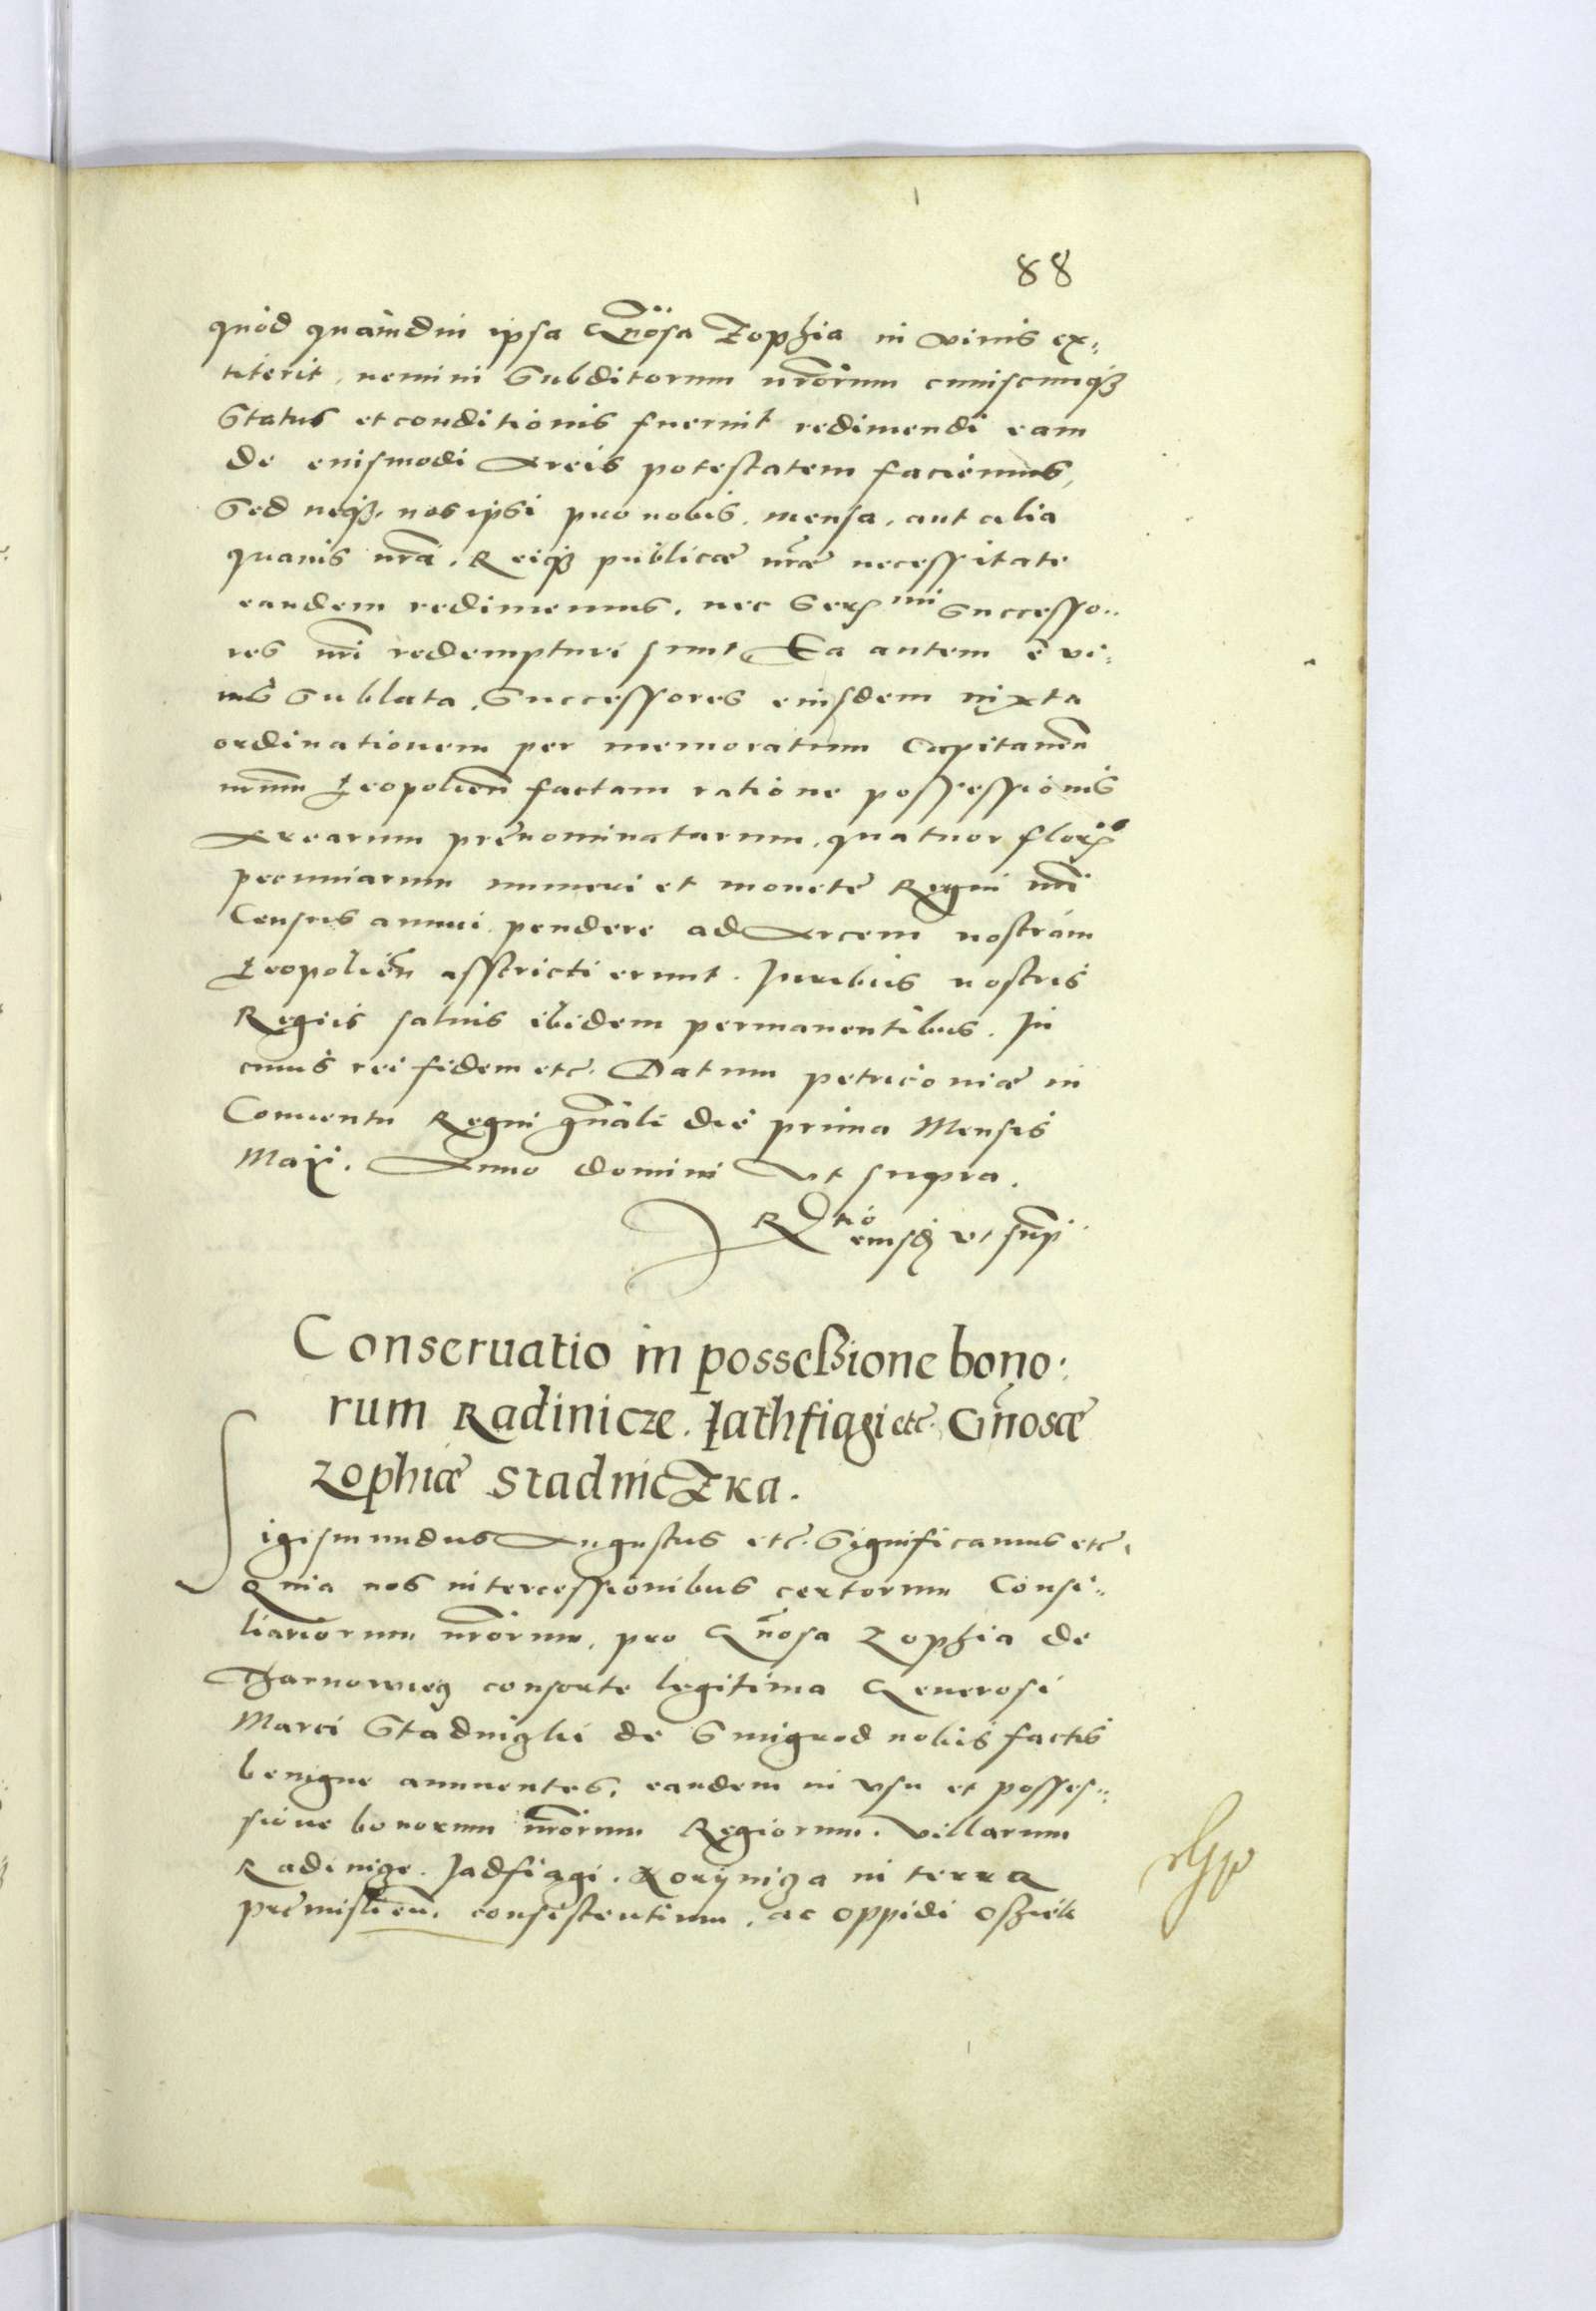 88
quod quamdiu ipsa Gnosa Zophia in viuis ex:
titerit, nemini Subditorum nrorum cuiuscunq3
Status et conditionis fuerint redimendi eam
de eiusmodi Areis potestatem faciemus,
Sed neq3. nos ipsi pro nobis, mensa, aut alia
quauis nra, Reiq3 publicæ nræ necessitate
eandem redimemus, nec Ser mi Successo:
res nri redempturi sunt. Ea autem è vi:
uis sublata, Successores eiusdem iuxta
ordinationem per memoratum Capitaneu
nrum Leopolien factam ratione possessionis
Arearum prænominatarum, quatuor flor
pecuniarum numeri et monetæ Regni nri
Census annui pendere ad Arcem nostram
Leopolien asstricti erunt. Juribus nostris
Regiis saluis ibidem permanentibus. In
cuius rei fidem etc. Datum petricouiæ in
Conuentu Regni gnali die prima Mensis
Maij. Anno domini Vt supra.
Rtio eiusd vt sup
Conseruatio in posseßione bono:
rum Radinicze. Jathfiagi etc. Gnosæ
Zophiæ Stadniczka.
Sigismundus Augustus etc. Significamus etc.
Quia nos intercessionibus certorum Consi:
liariorum nrorum, pro Gnosa Zophia de
Tharnowiecz consorte legitima Generosi
Marci Stadnizki de Smigrod nobis factis
benigne annuentes, eandem in vsu et posses:
sione bonorum nrorum Regiorum. Villarum
Radinize. Jadfiagi. Korijniza in terra
præmislien. consistentium, ac oppidi